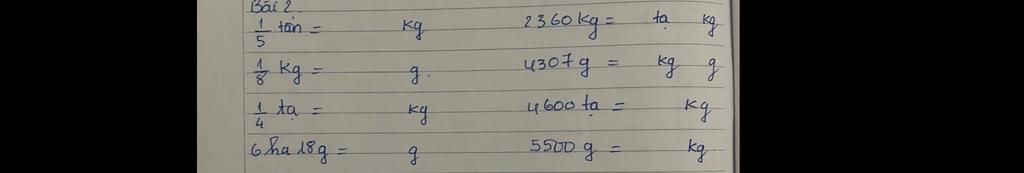 Bài 2
1/5 tấn = kg 2360 kg = tạ kg
1/8 kg = g. 4307 g = kg g
1/4 tạ = kg 4600 tạ = kg
6 ha 18g = g 5500 g = kg.